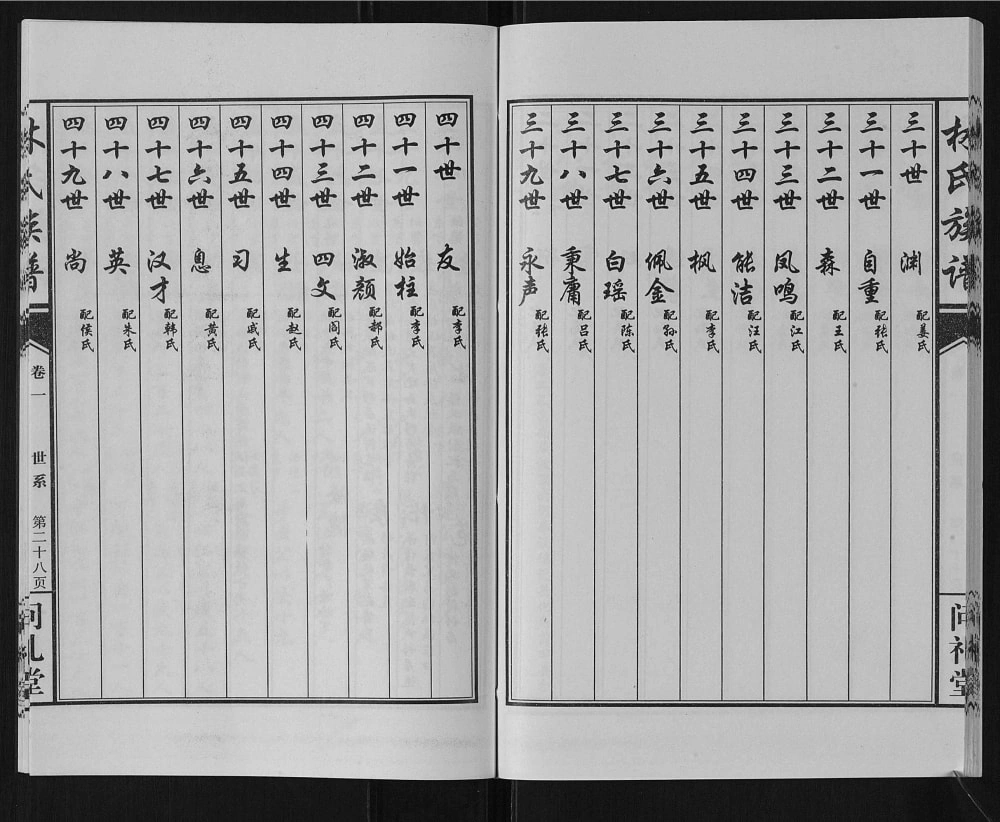 林氏族谱
问礼堂
三十世 渊 配姜氏
三十一世 自重 配张氏
三十二世 森 配王氏
三十三世 凤鸣 配江氏
三十四世 能洁 配汪氏
三十五世 枫 配李氏
三十六世 佩金 配孙氏
三十七世 白瑶 配陈氏
三十八世 秉庸 配吕氏
三十九世 永声 配张氏
四十世 友 配李氏
四十一世 始柱 配李氏
四十二世 淑颜 配郝氏
四十三世 四文 配阎氏
四十四世 生 配赵氏
四十五世 习 配戚氏
四十六世 息 配黄氏
四十七世 汉才 配韩氏
四十八世 英 配朱氏
四十九世 尚 配侯氏
林氏族谱
卷一 世系 第二十八页
问礼堂